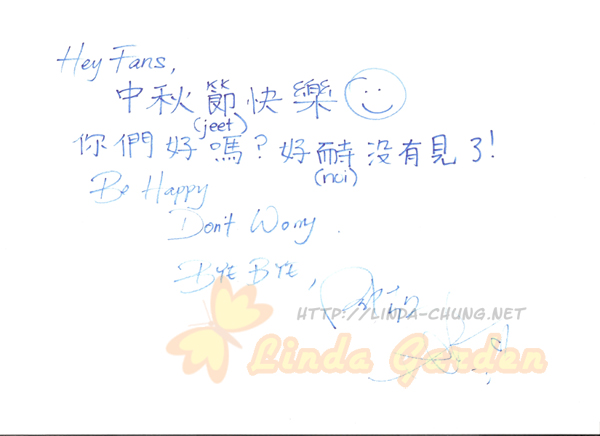 Hey Fans,
中秋節快樂
(jeet)
你們好嗎?好耐沒有見了!
(noi)
Be Happy
Don't Worry.
BYE BYE,
HTTP://LINDA-CHUNG.NET
Linda Garden